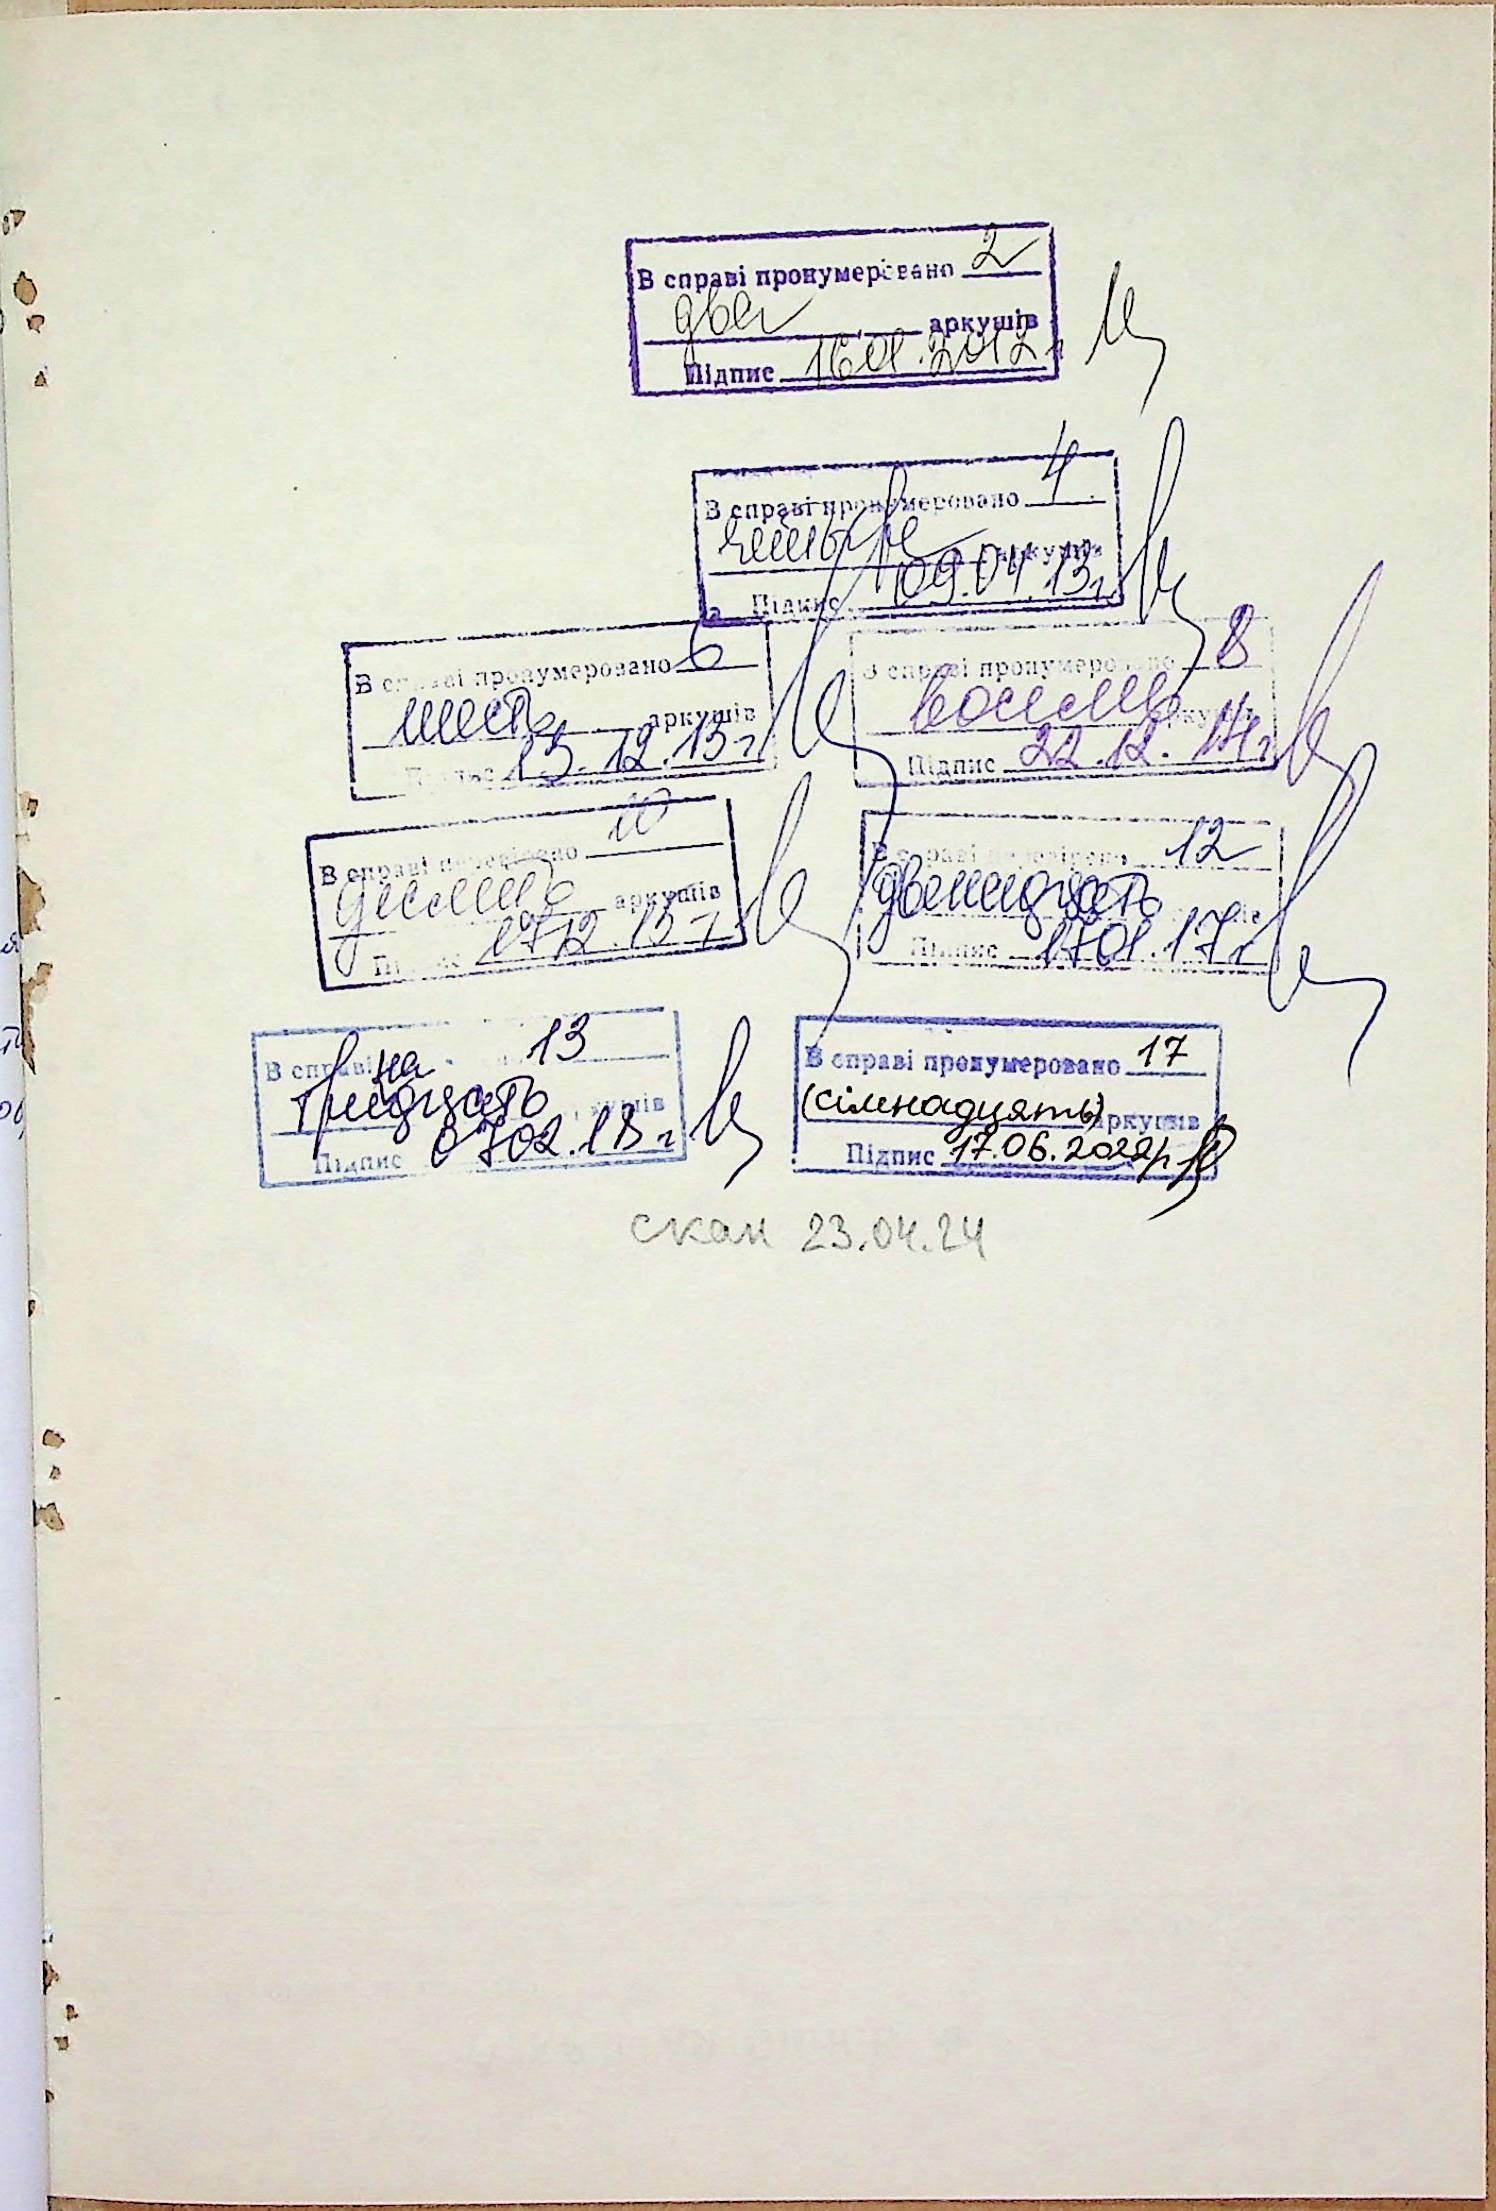 В справі пронумеровано 2
два аркушів
Підпис 16.01.2012 г
В справі пронумеровано 4
четыре аркушів
Підпис 09.04.13 г
В справі пронумеровано 6
шесть аркушів
Підпис 13.12.13 г
В справі пронумеровано 8
восемь аркушів
Підпис 22.12.14 г
В справі перевірено 10
десять аркушів
Підпис 17.12.15 г
В справі перевірено 12
двенадцать
Підпис 17.01.17 г
В справі 13
на
тринадцать аркушів
Підпис 07.02.18 г
В справі пронумеровано 17
(сімнадцять) аркушів
Підпис 17.06.2022р
скан 23.04.24